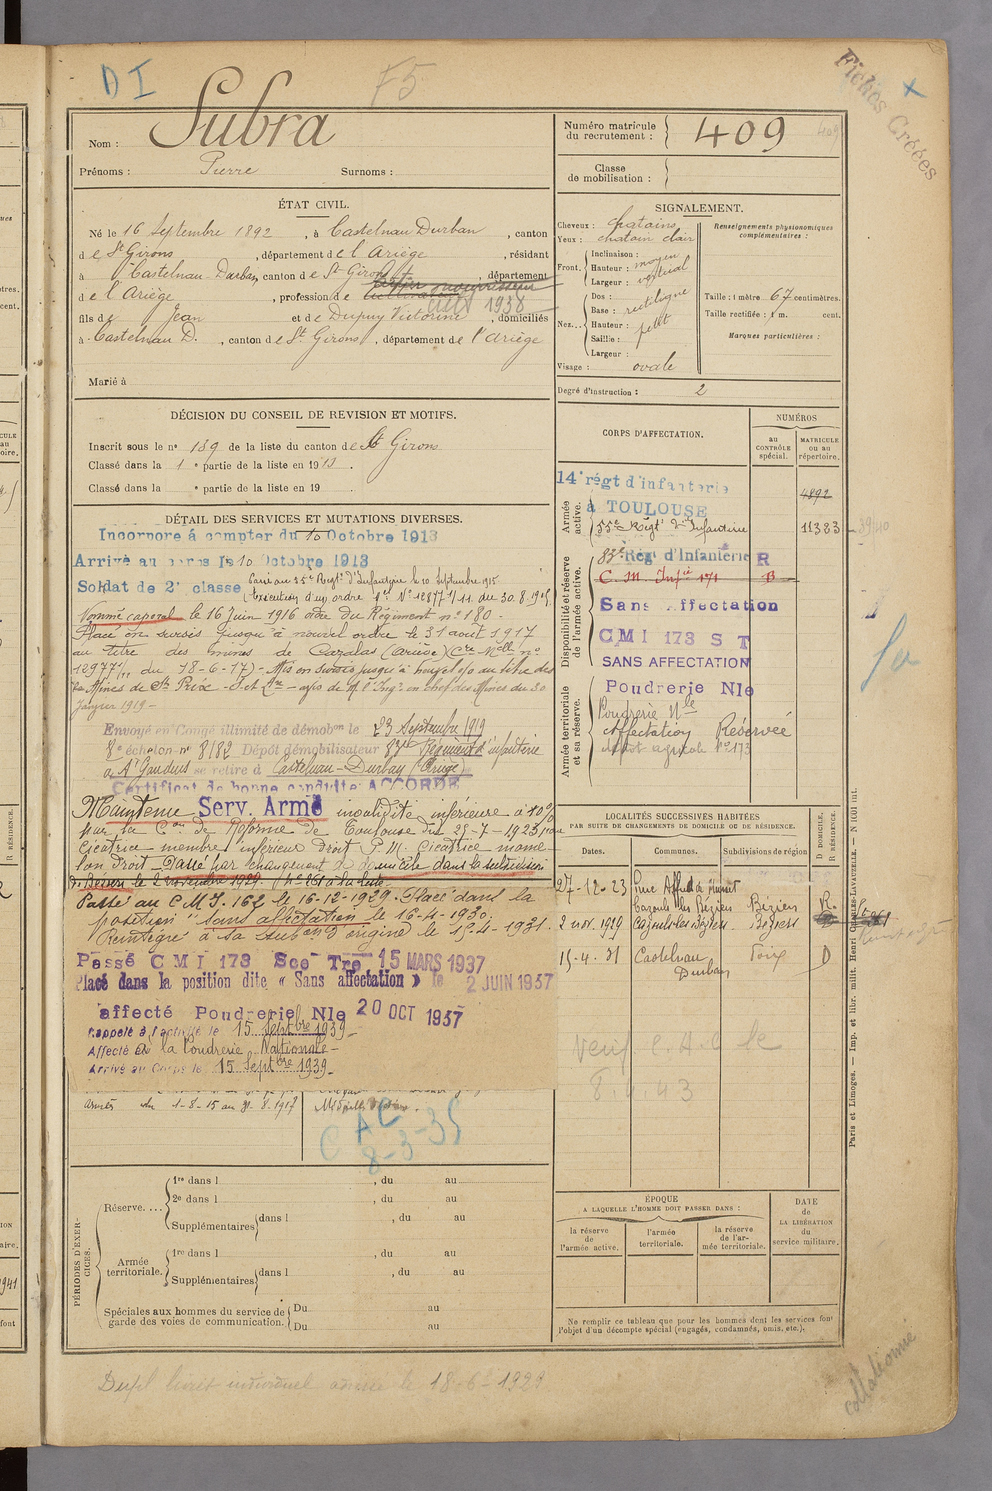 D I
F5
Fiches Créées
Nom : Subra
Prénoms : Pierre Surnoms :
Numéro matricule du recrutement : 409
Classe de mobilisation :
ÉTAT CIVIL.
Né le 16 Septembre 1892, à Castelnau Durban, canton
de St Girons, département de l'Ariège, résidant
à Castelnau-Durban, canton de St Girons, département
de l'Ariège, profession de cultivateur
1938
fils de Jean et de Dupuy Victorine, domiciliés
à Castelnau D., canton de St Girons, département de l'Ariège
Marié à
SIGNALEMENT.
Cheveux : chatains
Yeux : chatain clair
Front. Inclinaison :
Hauteur : moyen
Largeur : vertical
Nez... Dos :
Base : rectiligne
Hauteur : petit
Saillie :
Largeur :
Visage : ovale
Renseignements physionomiques complémentaires :
Taille : 1 mètre 67 centimètres.
Taille rectifiée : 1 m. cent.
Marques particulières :
Degré d'instruction : 2
DÉCISION DU CONSEIL DE REVISION ET MOTIFS.
Inscrit sous le n° 189 de la liste du canton de St Girons
Classé dans la 1e partie de la liste en 1913.
Classé dans la e partie de la liste en 19 .
DÉTAIL DES SERVICES ET MUTATIONS DIVERSES.
Incorporé à compter du 10 Octobre 1913
Arrivé au corps le 10 Octobre 1913
Soldat de 2e classe Passé au 55e Régt d'Infanterie le 10 Septembre 1915
(Exécution d'un ordre Mel N° 12877 1/11 du 30.8.1915)
Nommé caporal le 16 Juin 1916 ordre du Régiment n° 180-
Placé en sursis jusqu'à nouvel ordre le 31 août 1917
au titre des mines de Cazalas (Ariège) (Cre Melle n°
10977 1/11 du 18-6-17) - Mis en sursis jusqu'à nouvel o/o au titre des
Mines de St Prix - S-et-Lre - avis de Mr l'Ingr en chef des Mines du 30
Janvier 1919-
Envoyé en Congé illimité de démobon le 23 Septembre 1919
8e échelon n° 8182 Dépôt démobilisateur 83e Régiment d'infanterie
à St Gaudens se retire à Castelnau-Durban (Ariège)
Certificat de bonne conduite ACCORDÉ
Maintenu Serv. Armé invalidité inférieure à 10%
par la Con de Réforme de Toulouse du 25-7-1923 pour
Cicatrice membre inférieur droit P.M. Cicatrice mame-
lon droit Passé par changement de domicile dans la subdivision
de Béziers le 2 novembre 1929. (N° 261 à la liste.
Passé au C M I. 162 le 16-12-1929. Placé dans la
position "sans affectation le 16-4-1930.
Réintégré à sa subon d'origine le 15-4-1931.
Passé C M I 173 Sce Tre 15 MARS 1937
Placé dans la position dite « Sans affectation » le 2 JUIN 1937
affecté Poudrerie Nle 20 OCT 1937
Rappelé à l'activité le 15 Septbre 1939-
Affecté à la Poudrerie Nationale-
Arrivé au Corps le 15 Septbre 1939-
armés du 1-8-15 au 31-8-1917
C A C
8-3-35
CORPS D'AFFECTATION.
NUMÉROS
au CONTRÔLE spécial.
MATRICULE ou au répertoire.
Armée active.
14e régt d'infanterie 4892
à TOULOUSE
55e Régt d'Infanterie 11383
39/40
Disponibilité et réserve de l'armée active.
83e Régt d'Infanterie R
C. M. Infie 171 B
Sans Affectation
CMI 173 S T
SANS AFFECTATION
Armée territoriale et sa réserve.
Poudrerie Nle
Poudrerie Nle
Affectation Réservée
dépôt agricole N° 173
LOCALITÉS SUCCESSIVES HABITÉES
PAR SUITE DE CHANGEMENTS DE DOMICILE OU DE RÉSIDENCE.
Dates. Communes. Subdivisions de région
D DOMICILE. R RÉSIDENCE.
27-12-23
Cazouls les Béziers Béziers R.
2 nov. 1929 Cazouls les Béziers Béziers
15-4-31 Castelnau Durban Foix D
8.4.43
ÉPOQUE
A LAQUELLE L'HOMME DOIT PASSER DANS :
la réserve de l'armée active.
l'armée territoriale.
la réserve de l'armée territoriale.
DATE de LA LIBÉRATION du service militaire.
PÉRIODES D'EXERCICES.
Réserve.... 1re dans l , du au
2e dans l , du au
Supplémentaires dans l , du au
Armée territoriale. 1re dans l , du au
Supplémentaires dans l , du au
Spéciales aux hommes du service de garde des voies de communication. Du au
Du au
Ne remplir ce tableau que pour les hommes dont les services font l'objet d'un décompte spécial (engagés, condamnés, omis, etc.).
Paris et Limoges. — Imp. et libr. milit. Henri Charles-Lavauzelle.
Dupl livret individuel le 18-6-1929
collationné